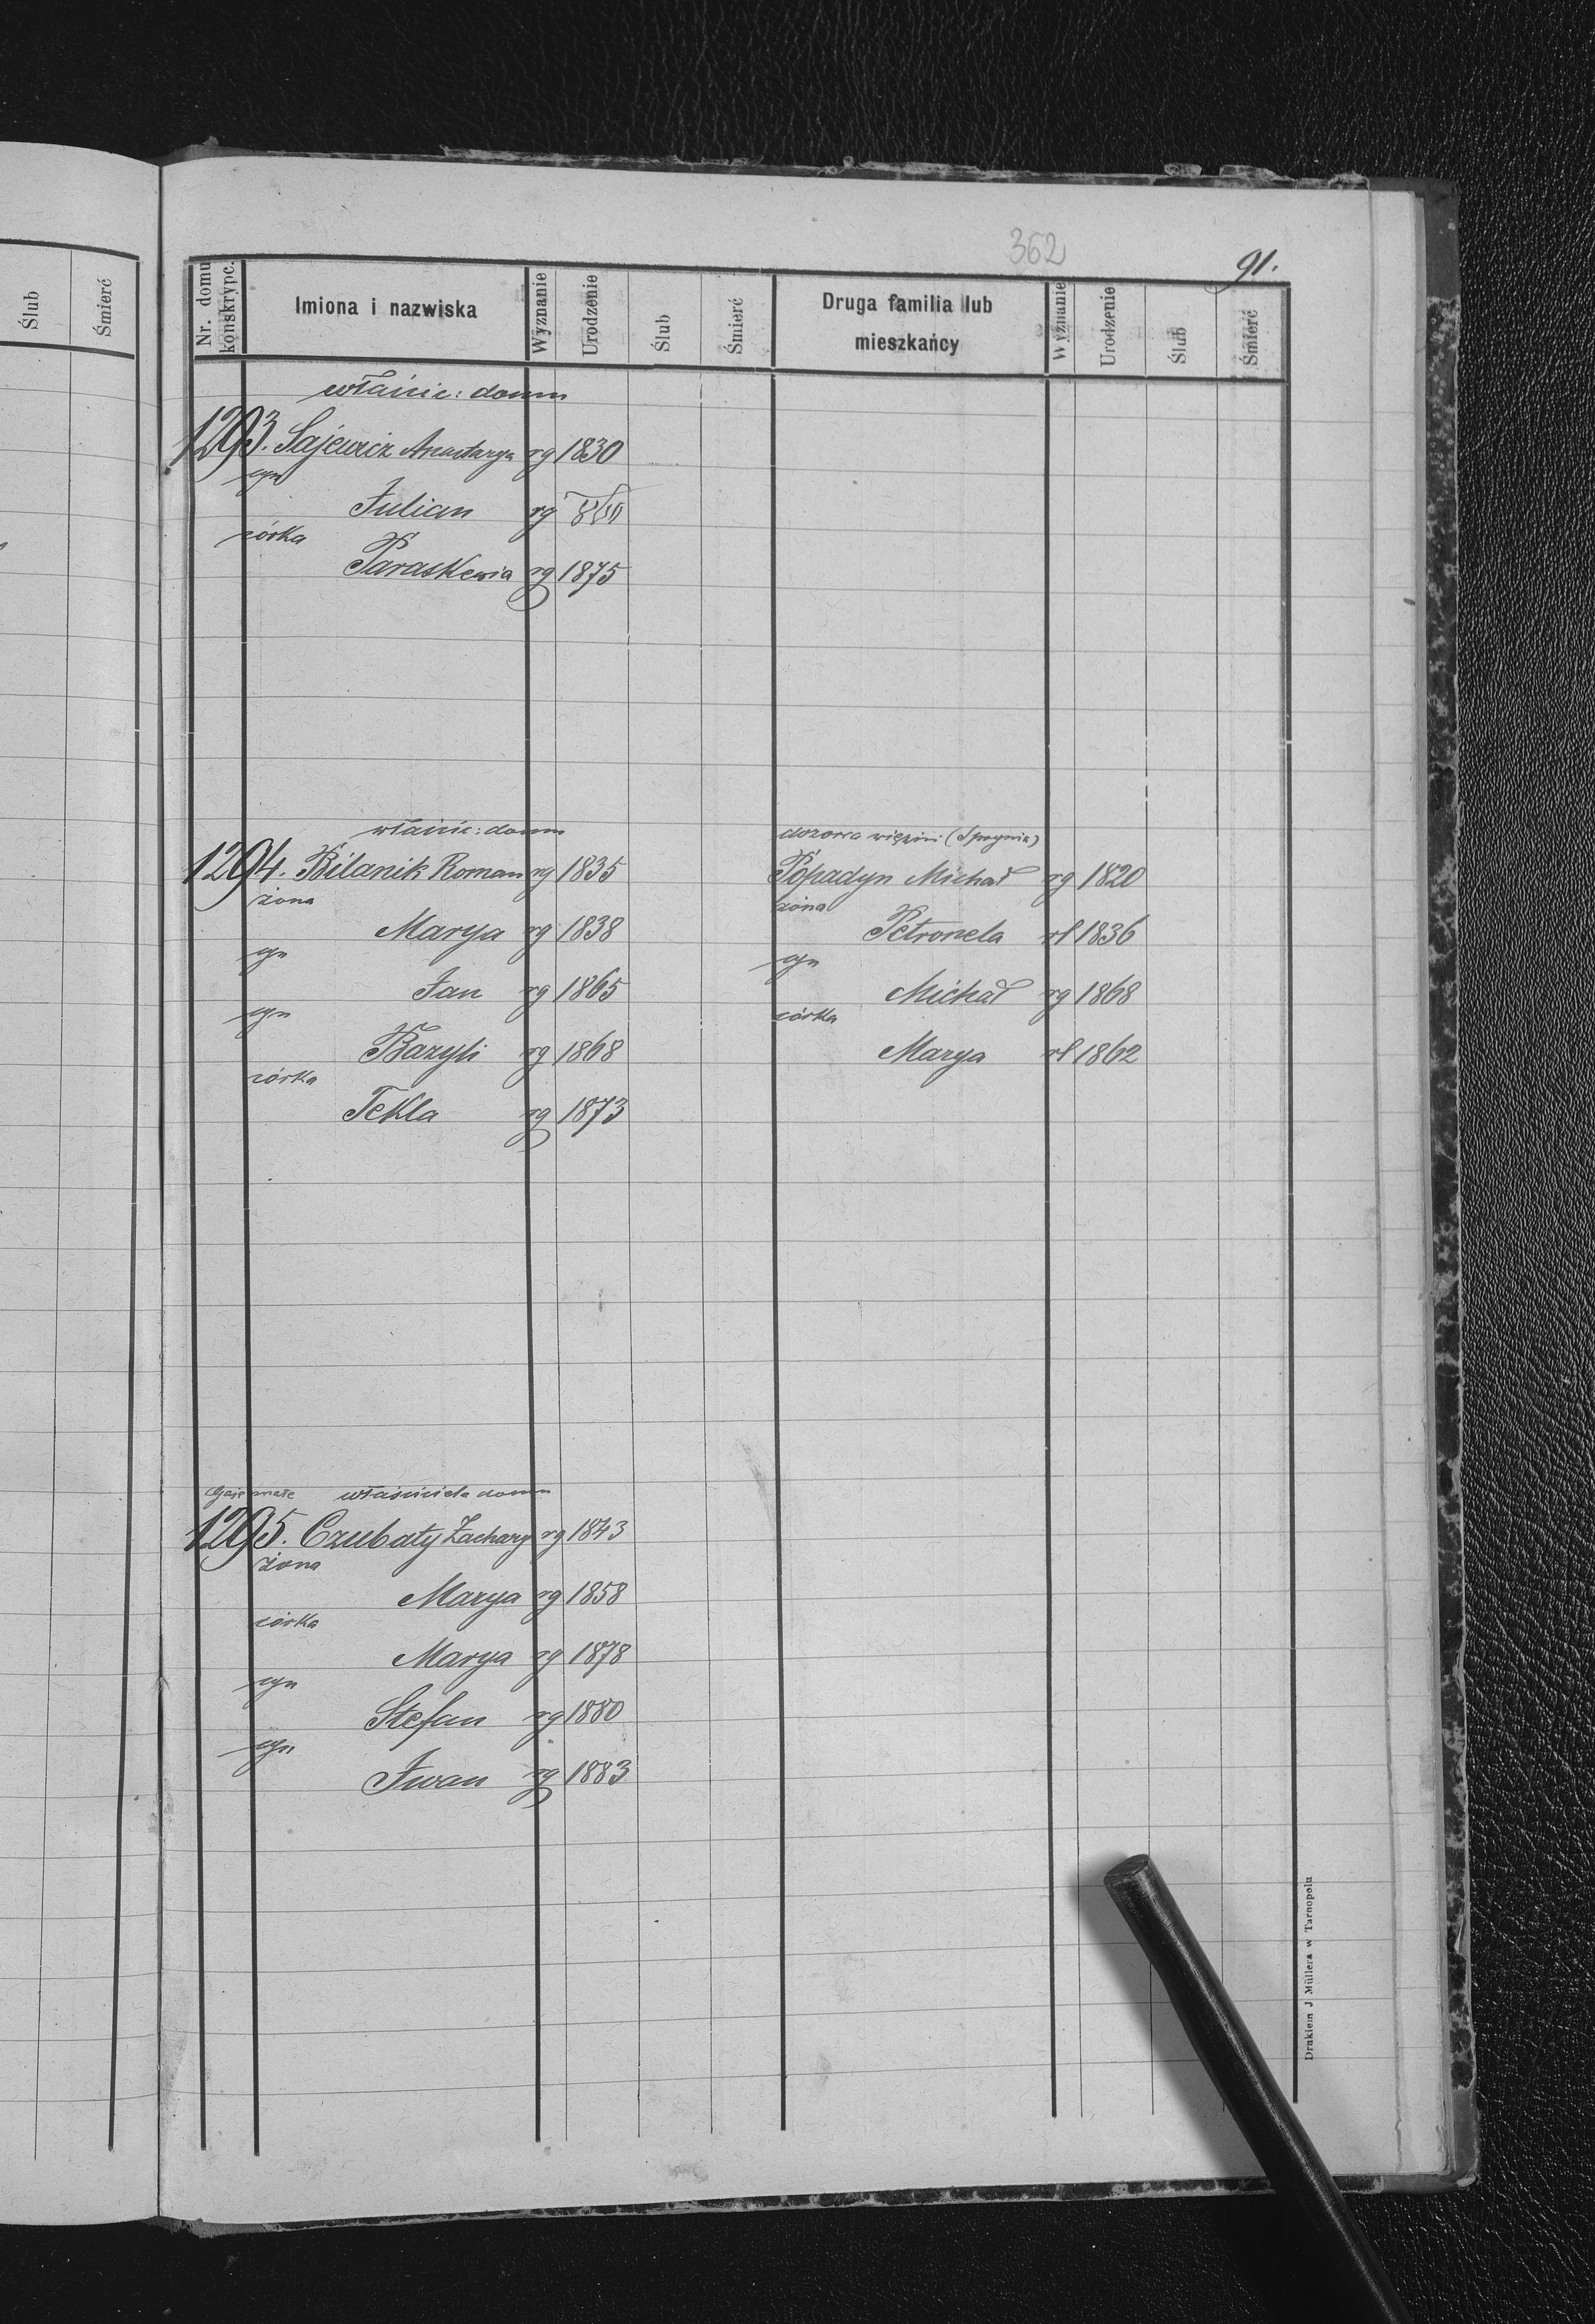 Ślub
Śmierć
362
91.
Nr. domu konskrypc.
Imiona i nazwiska
Wyznanie
Urodzenie
Ślub
Śmierć
Druga familia lub mieszkańcy
Wyznanie
Urodzenie
Ślub
Śmierć
właścic: domu
1293. Sajewicz Anastazya rg 1830
syn
Julian rg
córka
Paraskewia rg 1875
właścic: domu
1294. Bilanik Roman rg 1835
żona
Marya rg 1838
syn
Jan rg 1865
syn
Bazyli rg 1868
córka
Tekla rg 1873
dozorca więźni
Popadyn Michał rg 1820
żona
Petronela rł 1836
syn
Michał rg 1868
córka
Marya rł 1862
Gaje małe właściciel domu
1295. Czubaty Zachary rg 1843
żona
Marya rg 1858
córka
Marya rg 1878
syn
Stefan rg 1880
syn
Iwan rg 1883
Drukiem J Müllera w Tarnopolu